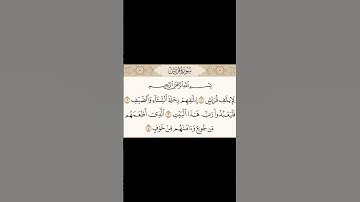 سورة قريش
بسم الله الرحمن الرحيم
لإيلاف قريش ۝ إيلافهم رحلة الشتاء والصيف ۝
فليعبدوا رب هذا البيت ۝ الذي أطعمهم
من جوع وءامنهم من خوف ۝